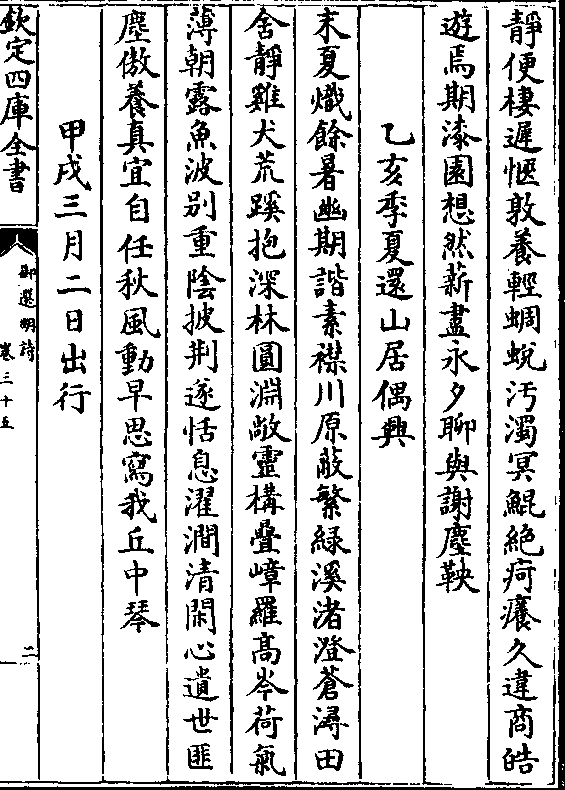 靜便棲遲愜敦養輕蜩蛻汚濁冥鯤絶疴癢久違商皓
遊焉期漆園想然薪盡永夕聊與謝塵鞅
乙亥季夏還山居偶興
末夏熾餘暑幽期諧素襟川原蔽繁緑溪渚澄蒼潯田
舍靜雞犬荒蹊抱深林圓淵敞靈構疊嶂羅髙岑荷氣
薄朝露魚波别重陰披荆遂恬息濯澗清閑心遺世匪
塵傲養真宜自任秋風動早思寫我丘中琴
甲戌三月二日出行
欽定四庫全書
御選明詩
卷三十五
二